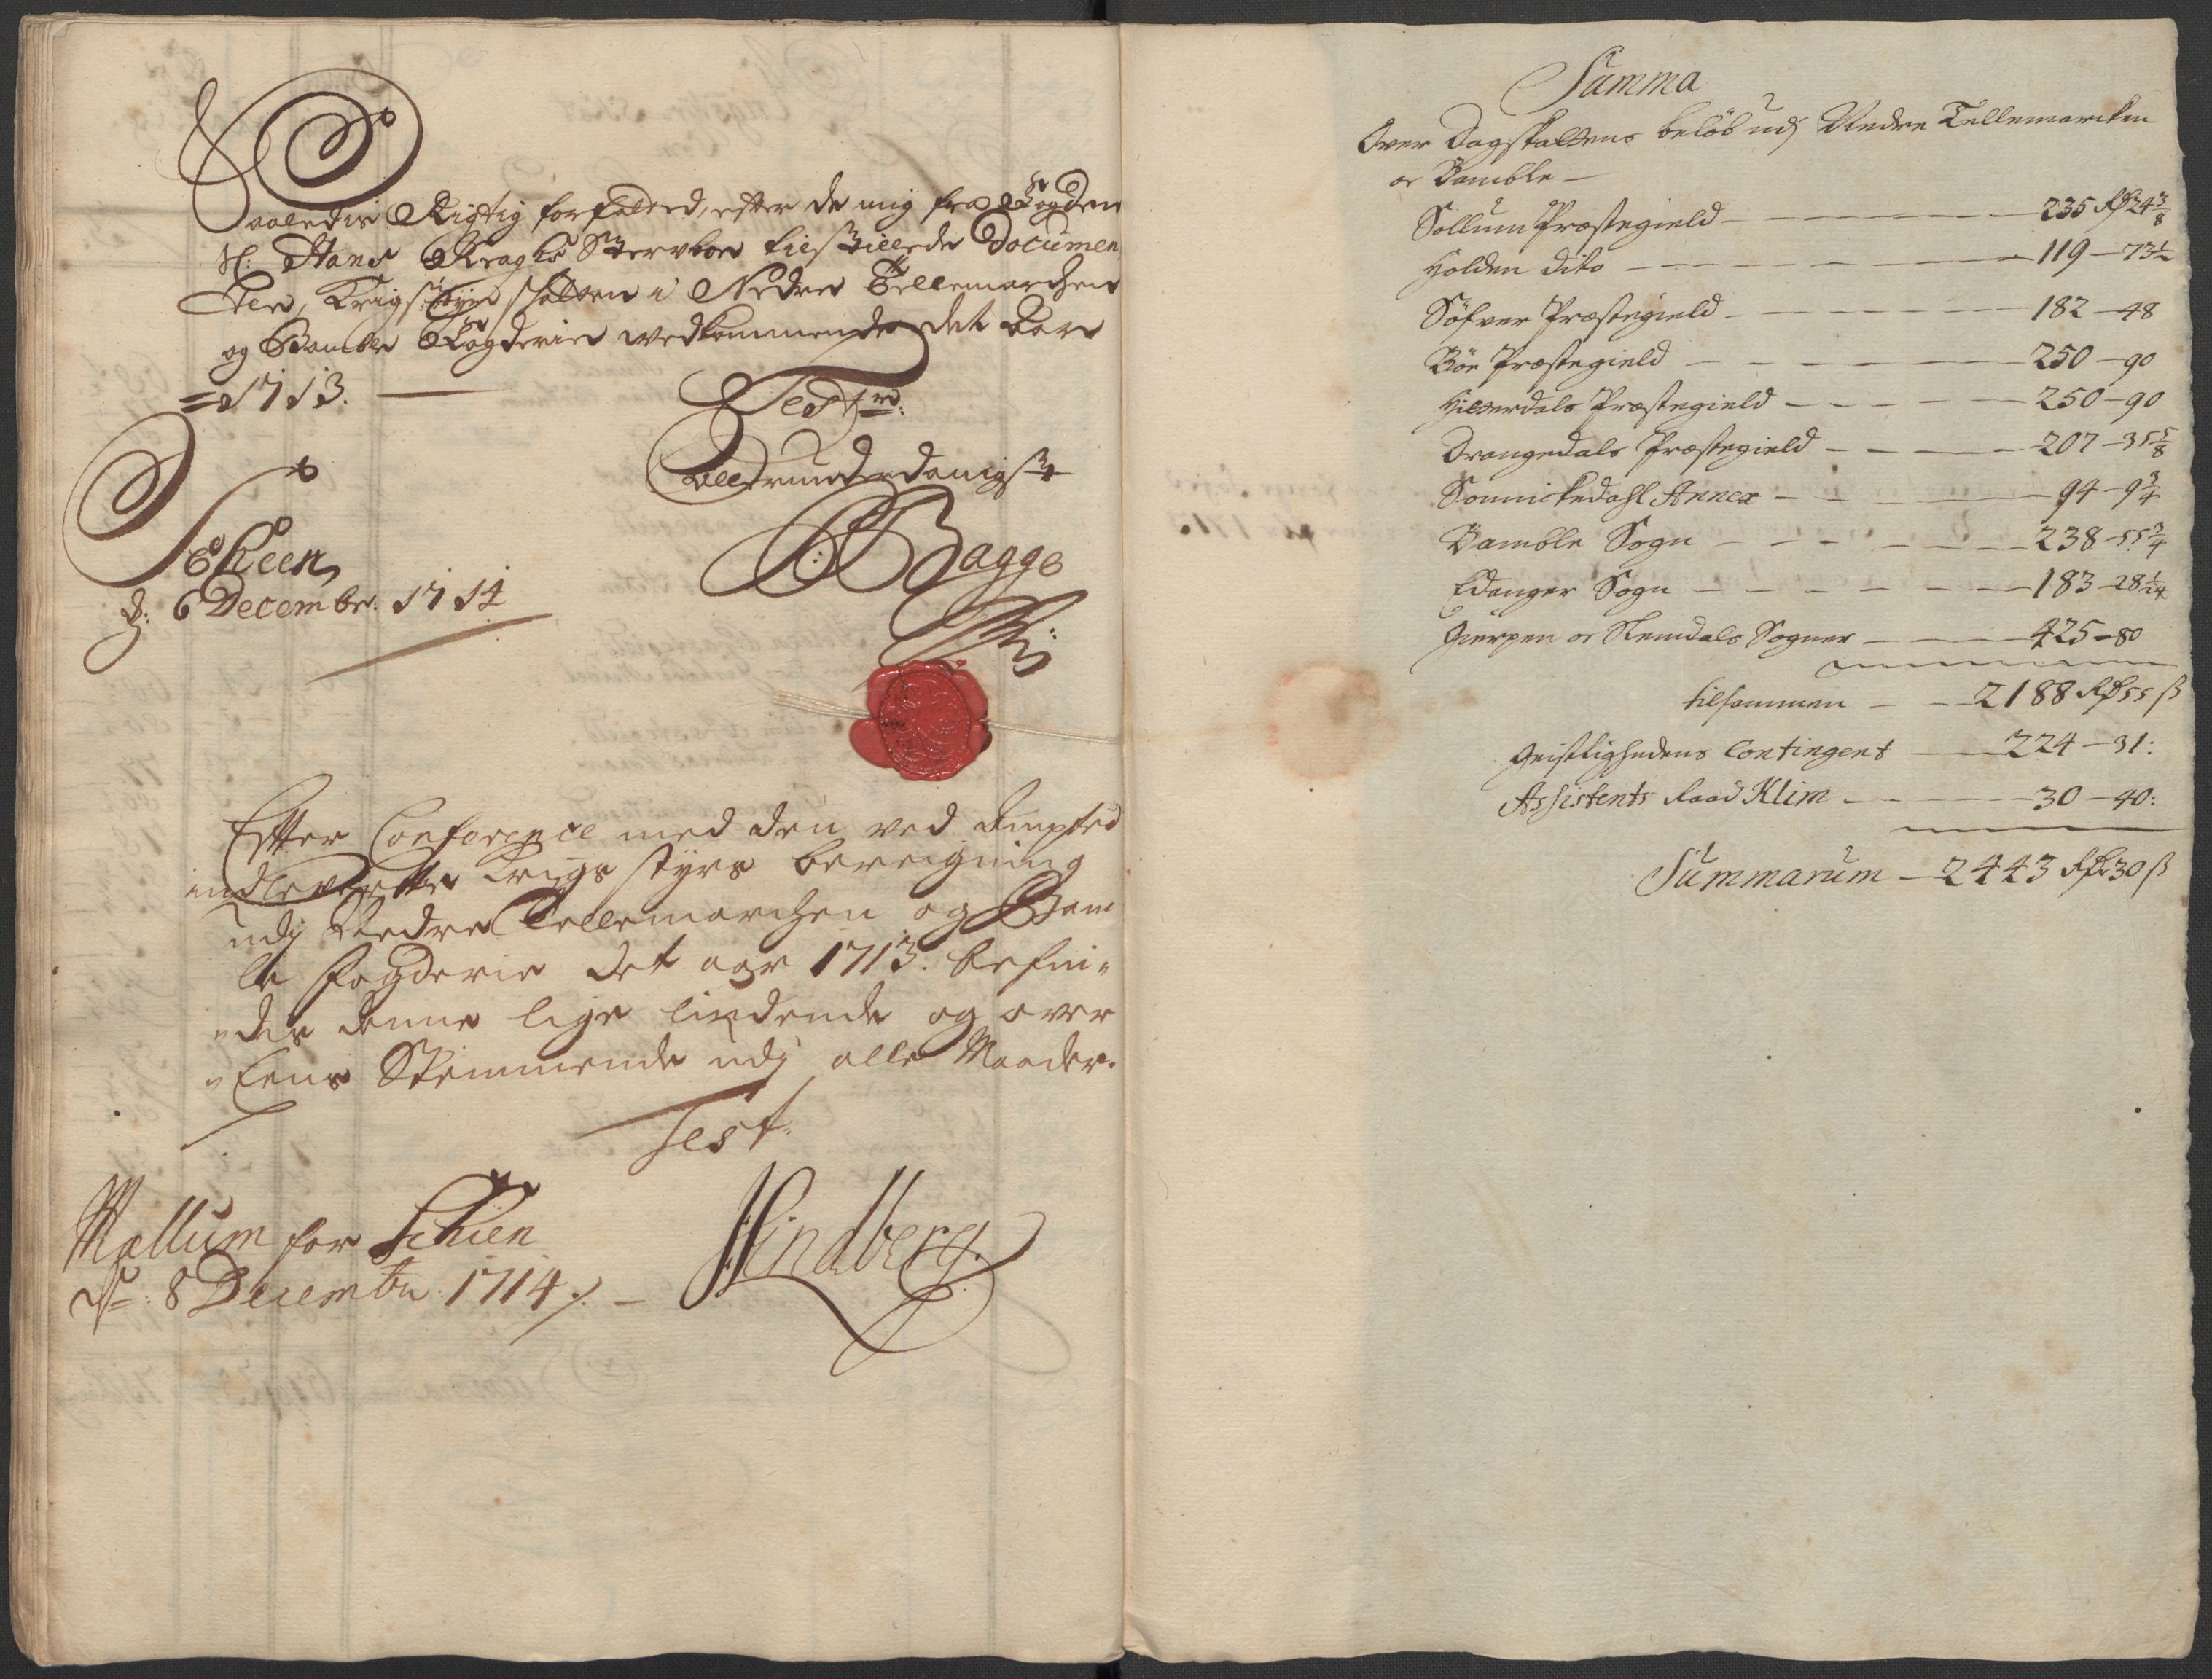 Saaledis Rigtig forfatted, efter de mig fra Fogden
Sl: Hans Kraghs Sterboe tilstillede Documen
ter, Krigs Styr skatten i Nedre Tellemarchen
og Bamble Fogderie vedkommende det Aar
=1713. —
Test:
allerunderdanigst
Bagge
Scheen
d: 6 December: 1714
Efter Conference med den ved Ampted
indleverte Krigs styrs beregning
udj Nedre Tellemarchen og Bam
le fogderie det aar 1713. befin„
„des denne lige lindende og over
„Eens Stemmende udj alle Maader.
Test:
Mællum for Schien
d: 8 Decembr: 1714 ./. —
Lindberg.
Summa
Over Dagskattens beløb udj Nedre Tellemarcken
oc Bamble —
Sollum Præstegield — 235 Rd 24 3/8
Holden dito — 119 — 73 1/2
Søfver Præstegield — 182 — 48
Bøe Præstegield — 250 — 90
Hitterdals Præstegield — 250 — 90
Drangedals Præstegield — 207 — 35 5/8
Sannickedahl Annex — 94 — 9 3/4
Bamble Sogn — 238 — 55 3/4
Edanger Sogn — 183 — 28 1/24
Gierpen oc Slemdals Sogner — 425 — 80
tilsammen — 2188 Rd 55 ß
Geistlighedens Contingent — 224 — 31:
Assistents Raad Klim — 30 — 40:
Summarum — 2443 Rd 30 ß